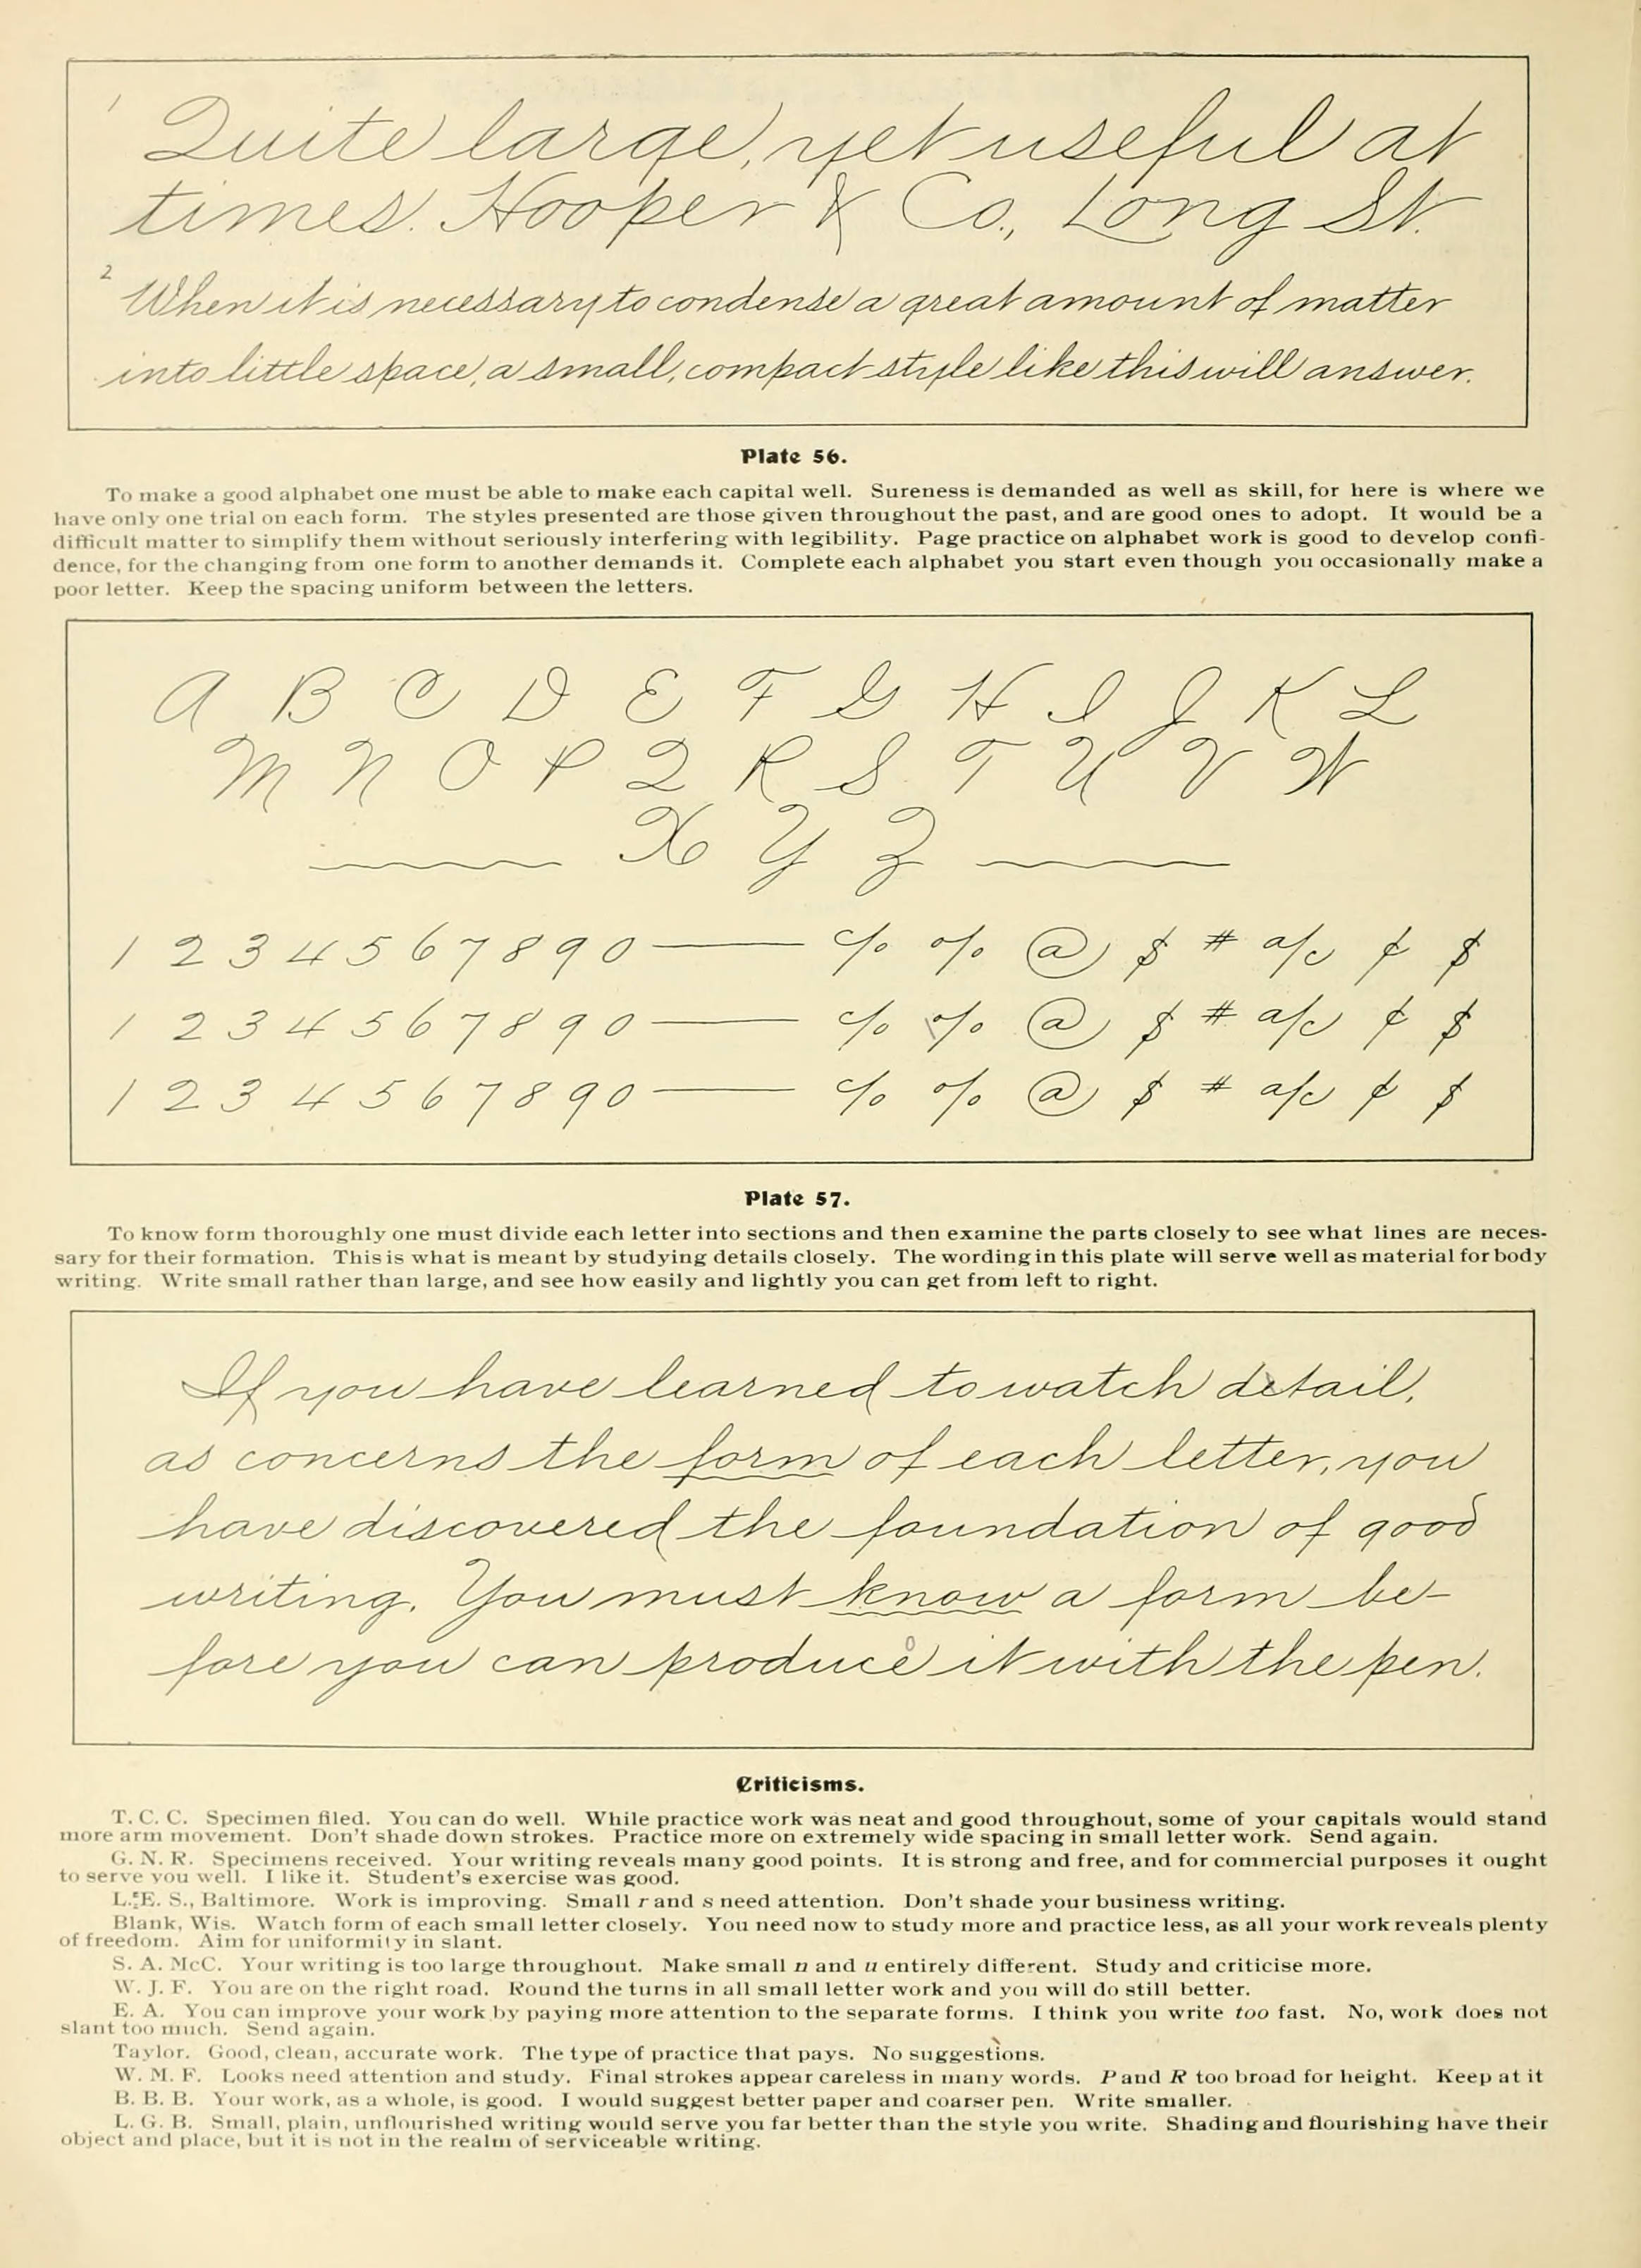 1 Quite large, yet useful at
times. Hooper & Co., Long St.
2 When it is necessary to condense a great amount of matter
into little space, a small, compact style like this will answer.
Plate 56.
To make a good alphabet one must be able to make each capital well. Sureness is demanded as well as skill, for here is where we
have only one trial on each form. The styles presented are those given throughout the past, and are good ones to adopt. It would be a
difficult matter to simplify them without seriously interfering with legibility. Page practice on alphabet work is good to develop confi-
dence, for the changing from one form to another demands it. Complete each alphabet you start even though you occasionally make a
poor letter. Keep the spacing uniform between the letters.
A B C D E F G H I J K L
M N O P Q R S T U V W
X Y Z
1 2 3 4 5 6 7 8 9 0 — c/o % @ $ # a/c ¢ $
1 2 3 4 5 6 7 8 9 0 — c/o % @ $ # a/c ¢ $
1 2 3 4 5 6 7 8 9 0 — c/o % @ $ # a/c ¢ $
Plate 57.
To know form thoroughly one must divide each letter into sections and then examine the parts closely to see what lines are neces-
sary for their formation. This is what is meant by studying details closely. The wording in this plate will serve well as material for body
writing. Write small rather than large, and see how easily and lightly you can get from left to right.
If you have learned to watch detail,
as concerns the form of each letter, you
have discovered the foundation of good
writing. You must know a form be-
fore you can produce it with the pen.
Criticisms.
T. C. C. Specimen filed. You can do well. While practice work was neat and good throughout, some of your capitals would stand
more arm movement. Don't shade down strokes. Practice more on extremely wide spacing in small letter work. Send again.
G. N. R. Specimens received. Your writing reveals many good points. It is strong and free, and for commercial purposes it ought
to serve you well. I like it. Student's exercise was good.
L. E. S., Baltimore. Work is improving. Small r and s need attention. Don't shade your business writing.
Blank, Wis. Watch form of each small letter closely. You need now to study more and practice less, as all your work reveals plenty
of freedom. Aim for uniformity in slant.
S. A. McC. Your writing is too large throughout. Make small n and u entirely different. Study and criticise more.
W. J. F. You are on the right road. Round the turns in all small letter work and you will do still better.
E. A. You can improve your work by paying more attention to the separate forms. I think you write too fast. No, work does not
slant too much. Send again.
Taylor. Good, clean, accurate work. The type of practice that pays. No suggestions.
W. M. F. Looks need attention and study. Final strokes appear careless in many words. P and R too broad for height. Keep at it
B. B. B. Your work, as a whole, is good. I would suggest better paper and coarser pen. Write smaller.
L. G. B. Small, plain, unflourished writing would serve you far better than the style you write. Shading and flourishing have their
object and place, but it is not in the realm of serviceable writing.